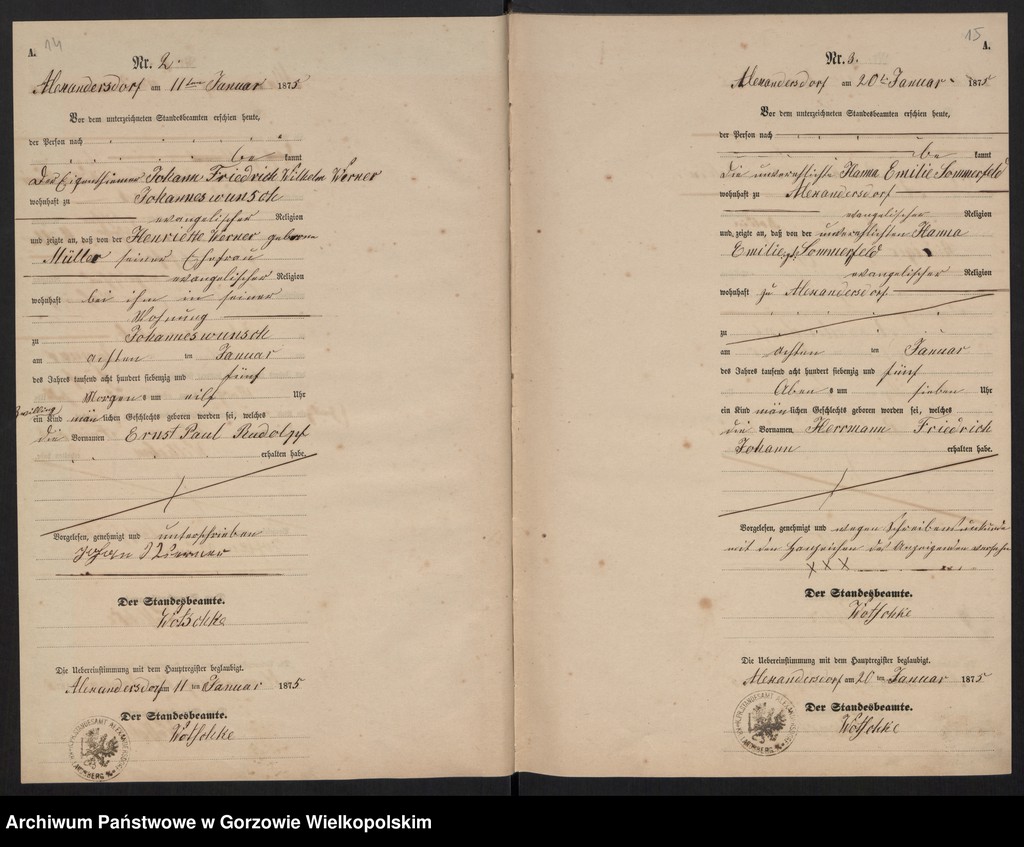 14
A.
Nr. 2.
Alexandersdorf am 11ten Januar 1875
Vor dem unterzeichneten Standesbeamten erschien heute,
der Person nach
be kannt
Der Eigenthümer Johann Friedrich Wilhelm Werner
wohnhaft zu Johanneswunsch
evangelischer Religion
und zeigte an, daß von der Henriette Werner geborene
Müller seiner Ehefrau
evangelischer Religion
wohnhaft bei ihm in seiner
Wohnung
zu Johanneswunsch
am achten ten Januar
des Jahres tausend acht hundert siebenzig und fünf
Morgens um eilf Uhr
Zwilling
ein Kind männlichen Geschlechts geboren worden sei, welches
die Vornamen Ernst Paul Rudolph
erhalten habe.
Vorgelesen, genehmigt und unterschrieben
Werner
Der Standesbeamte.
Wotschke
Die Uebereinstimmung mit dem Hauptregister beglaubigt.
Alexandersdorf am 11 ten Januar 1875
Der Standesbeamte.
Wotschke
15
A.
Nr. 3.
Alexandersdorf am 20t Januar 1875
Vor dem unterzeichneten Standesbeamten erschien heute,
der Person nach
be kannt
die unverehlichte Hanna Emilie Sommerfeld
wohnhaft zu Alexandersdorf
evangelischer Religion
und zeigte an, daß von der unverehlichten Hanna
Emilie Sommerfeld
evangelischer Religion
wohnhaft zu Alexandersdorf
zu
am achten ten Januar
des Jahres tausend acht hundert siebenzig und fünf
Abends um sieben Uhr
ein Kind männlichen Geschlechts geboren worden sei, welches
die Vornamen Herrmann Friedrich
Johann erhalten habe.
Vorgelesen, genehmigt und wegen Schreibensunkunde
mit den Handzeichen des Anzeigenden versehn
XXX
Der Standesbeamte.
Wotschke
Die Uebereinstimmung mit dem Hauptregister beglaubigt.
Alexandersdorf am 20 ten Januar 1875
Der Standesbeamte.
Wotschke
Archiwum Państwowe w Gorzowie Wielkopolskim